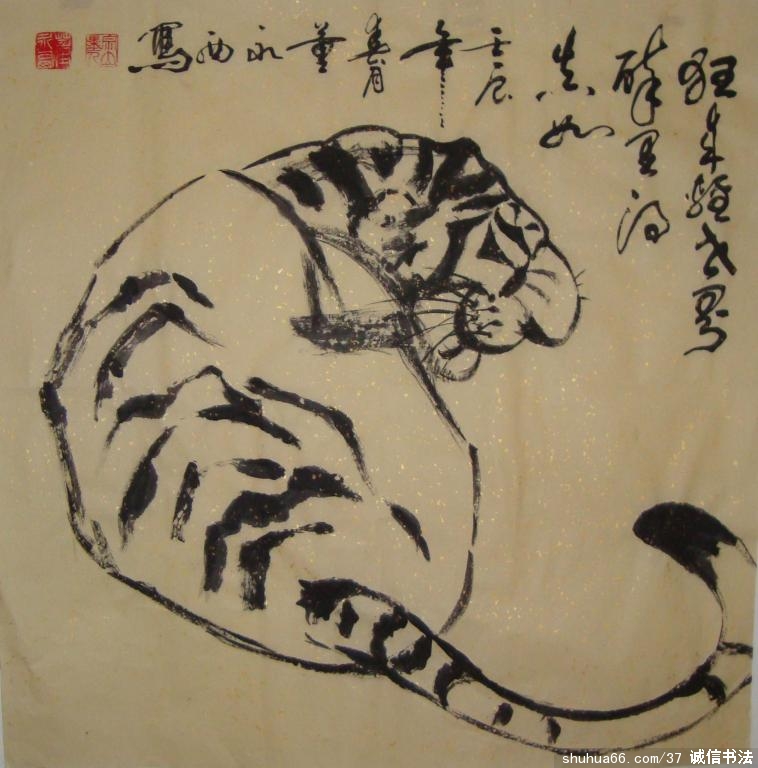 狂来輕世界
醉里得
真如
壬辰
年
春月
董
永
西
寫
shuhua66.com/37 诚信书法